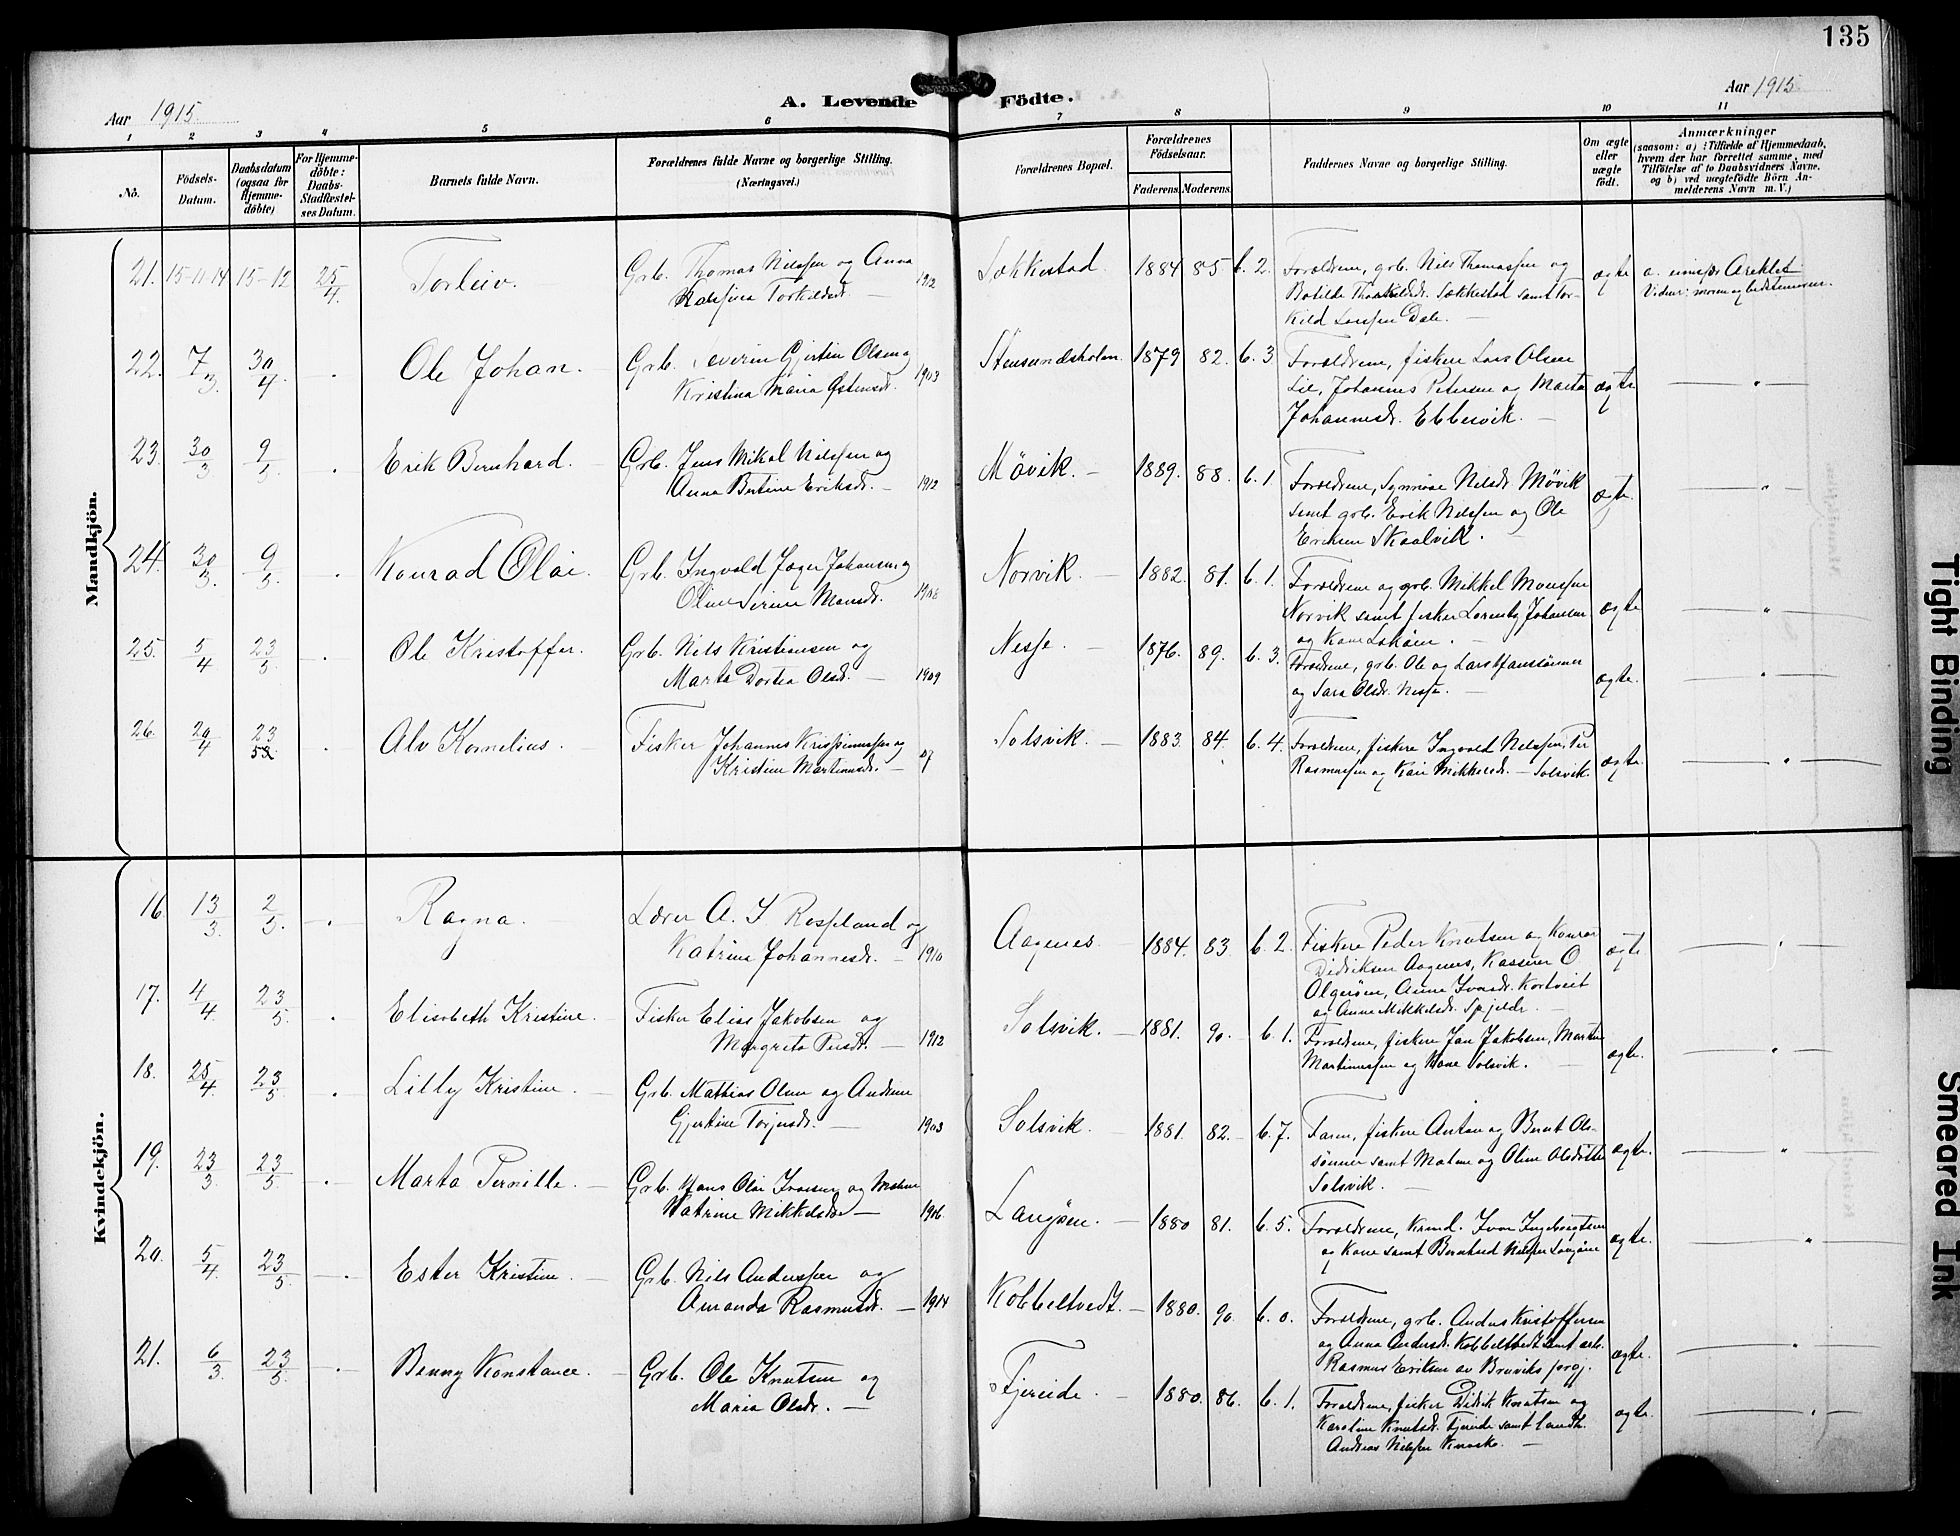 135
Aar 1915.
A. Levende Födte.
Aar 1915
1 2 3 4 5 6 7 8 9 10 11
No.
Födsels-Datum.
Daabsdatum (ogsaa for Hjemme-döbte)
For Hjemme-döbte: Daabs-Stadfæstel-ses Datum.
Barnets fulde Navn.
Forældrenes fulde Navne og borgerlige Stilling.
(Næringsvei.)
Forældrenes Bopæl.
Forældrenes Födselsaar.
Faderens. Moderens.
Faddernes Navne og borgerlige Stilling.
Om ægte eller uægte födt.
Anmærkninger
(saasom: a) i Tilfælde af Hjemmedaab, hvem der har forrettet samme, med Tilföielse af to Daabsvidners Navne, og b) ved uægtefödte Börn An-melderens Navn m. V.)
Mandkjön.
21. 15-11-14 15-12 25/4. Torleiv Grb. Thomas Nilssen og Anna
Torkildsdr. 1912 Sækkestad 1884 85 b. 2. Forældrene, grb. Nils Thomassen og
Botilde Sækkestad samt Tor-
kild Larssen Dale. ægte
22. 7/3. 30/4. Ole Johan. Grb. Severin Gjertin Olsen og
Kristina Maria Østensdr. 1903 Stensundsholm. 1879 82. b. 3 Forældrene, fisker Lars Olsen
Lie, Johannes Petersen og Marta
Johannesdr. Ebbesvik. ægte "
23. 30/3 9/5. Erik Bernhard. Grb. Jens Mikal Nilssen og
Anna Bertine Eriksdr. 1912 Møvik. 1889. 88. b. 1 Forældrene, Synnøve Nilsdr. Møvik
samt grb. Erik Nilssen og Ole
Eriksen Skaalvik. ægte. "
24. 30/3. 9/5. Konrad Olai. Grb. Ingvald Jæger Johansen og
Oline Serine Monsdr. Norvik. 1882. 81. b. 1. Forældrene og grb. Mikkel Monssen
Norvik samt fisker Johansen
og Kone ægte "
25. 5/4 23/5. Ole Kristoffer. Grb. Nils Kristiansen og
Marta Dortea Olsdr. 1909 Nesse. 1876. 89. b. 3. Forældrene, grb. Ole og Lars Hanssønner
og Sara Olsdr. Nesse. ægte. "
26. 29/4 23/5 Alv Kornelius. Fisker Johannes og
Kristine Martinusdr. 07 Solsvik. 1883. 84. b. 4. Forældrene, fiskere Ingvald Nilssen, Per
Rasmussen og Kari Mikkelsdr. Solsvik. ægte. "
Kvindekjön.
16 13/3. 2/5. Ragna. Lærer A. J. Rossland og
Katrine Johannesdr. 1910 Aagenes. 1884. 83. b. 2. Fiskere Peder Knutsen og Konrad
Didriksen Aagenes, Kasserer O
Algerøen, Anne Iversdr. Kortveit
og Anne Mikkelsdr. Spjelde. ægte "
17. 4/4. 23/5. Elisabeth Kristine. Fisker Elias Jakobsen og
Margreta Persdr. 1912 Solsvik. 1881. 90. b. 1. Forældrene, fiskere Jan Jakobsen, Martin
Martinussen og Kone Solsvik. ægte. "
18. 25/4. 23/5. Lilly Kristine. Grb. Mathias Olsen og Andrine
Gjertine Torjersdr. 1903 Solsvik. 1881. 82. b. 7. Faren, fiskere Anton og Bernt Ol-
sønner samt Malene og Oline Olsdøttre
Solsvik. ægte. "
19. 23/3. 23/5. Marta Pernille. Grb. Hans Olai Iversen og
Katrine Mikkelsdr. 1906. Langøen. 1880 81. b. 5. Forældrene, Krmd. Iver Ingebrigtsen
og Kone samt Bernhard Nilssen Langøen ægte. "
20. 5/4 23/5. Ester Kristine. Grb. Nils Anderssen og
Amanda Rasmusdr. 1914 Kobbeltvedt. 1880. 90. b. 0. Forældrene, grb. Anders Kristoffersen
og Anna Andersdr. Kobbeltvedt samt arb.
Rasmus Eriksen av Bruviks prgj. ægte. "
21. 6/3. 23/5. Benny Konstance. Grb. Ole Knutsen og
Maria Olsdr. Fjereide. 1880. 86. b. 1. Forældrene, fisker Didrik Knutsen og
Karoline Knutsdr. Fjereide samt
Andreas Nilssen ægte. "
Tight Binding
Smeared Ink